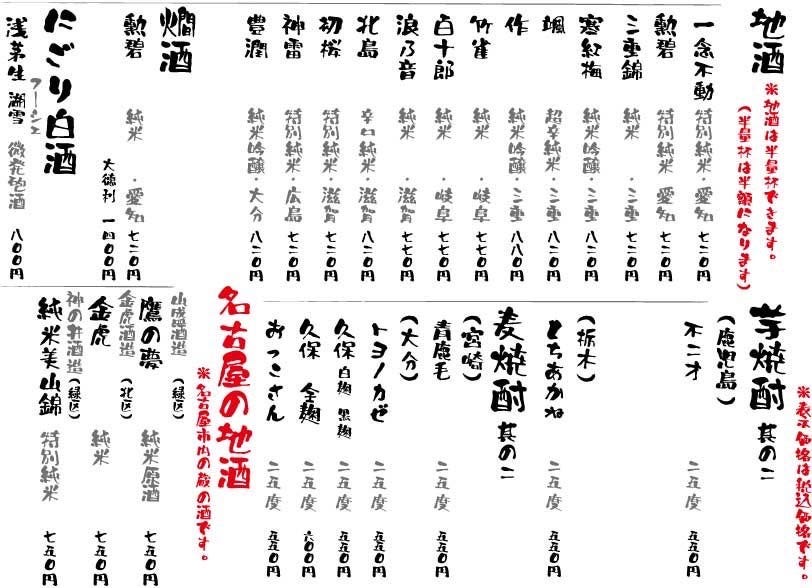 地酒
※地酒は半量杯できます。
(半量杯は半額になります)
一念不動 特別純米・愛知 七二〇円
勲碧 特別純米・愛知 七二〇円
三重錦 純米・三重 七二〇円
寒紅梅 純米吟醸・三重 八二〇円
颯 超辛純米・三重 七七〇円
作 純米吟醸・三重 八八〇円
竹雀 純米・岐阜 七七〇円
百十郎 純米・岐阜 七七〇円
浪乃音 純米・滋賀 七七〇円
北島 辛口純米・滋賀 八二〇円
初桜 特別純米・滋賀 七二〇円
神雷 特別純米・広島 七二〇円
豊潤 純米吟醸・大分 八二〇円
燗酒
勲碧 純米・愛知 七二〇円
大徳利 一四〇〇円
にごり白酒
フーシェ
浅茅生 湖雪 微発泡酒 八〇〇円
※表示価格は税込価格です。
芋焼酎 其の二
(鹿児島)
不二才 二五度 五五〇円
(栃木)
とちあかね 二五度 五五〇円
麦焼酎 其の二
(宮崎)
青鹿毛 二五度 五五〇円
(大分)
トヨノカゼ 二五度 五五〇円
久保 白麹 黒麹 二五度 五五〇円
久保 全麹 二五度 六〇〇円
おっこさん 二五度 五五〇円
名古屋の地酒
※名古屋市内の蔵の酒です。
山盛酒造 (緑区)
鷹の夢 純米原酒 七五〇円
金虎酒造 (北区)
金虎 純米 七五〇円
神の井酒造 (緑区)
純米美山錦 特別純米 七五〇円